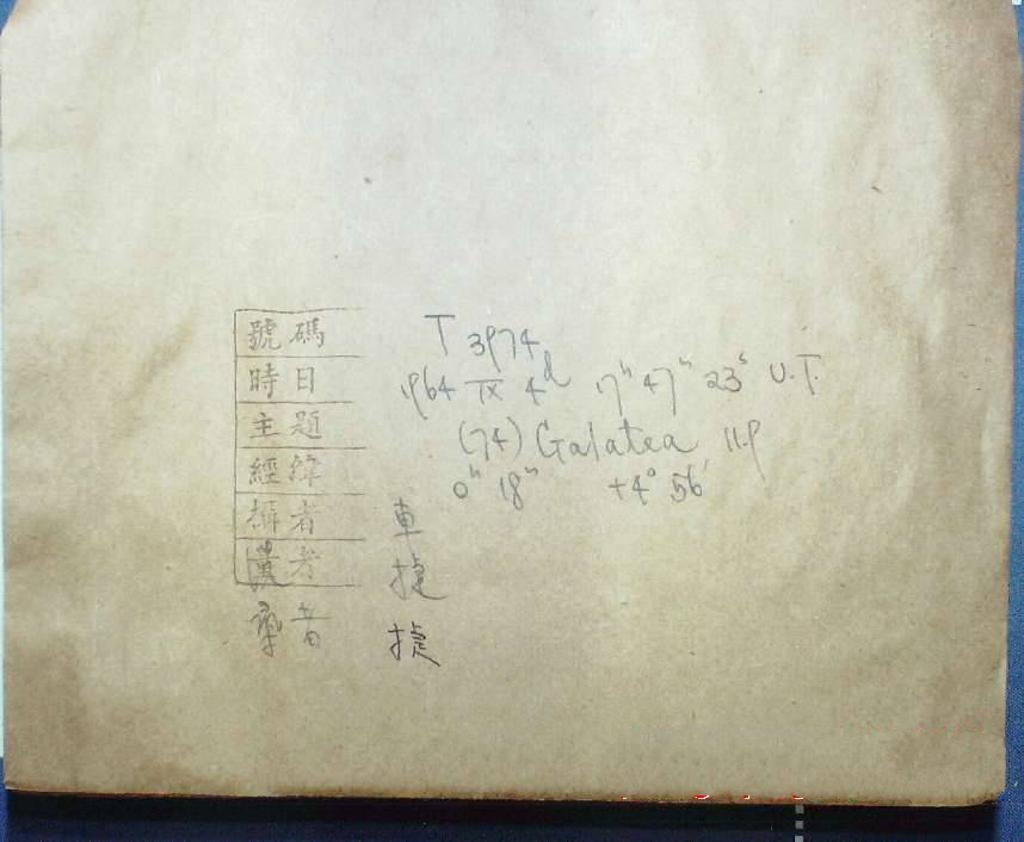 號碼 T 3974
時日 1964 IX 4d 17h 47m 23s U.T.
主題 (74) Galatea 11.9
經緯 0h 18m +4° 56′
攝者 車
者 捷
捷